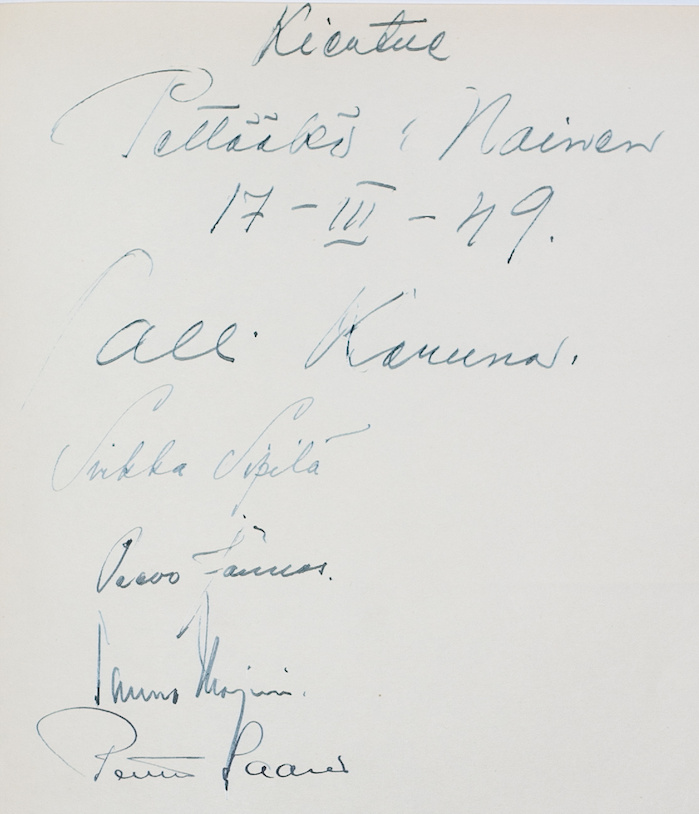 Kiertue
Pettääkö Nainen
17-III-49.
Salli Karuna.
Sirkka Sipilä
Paavo Jännes.
Tauno Majuri.
Pentti Saares